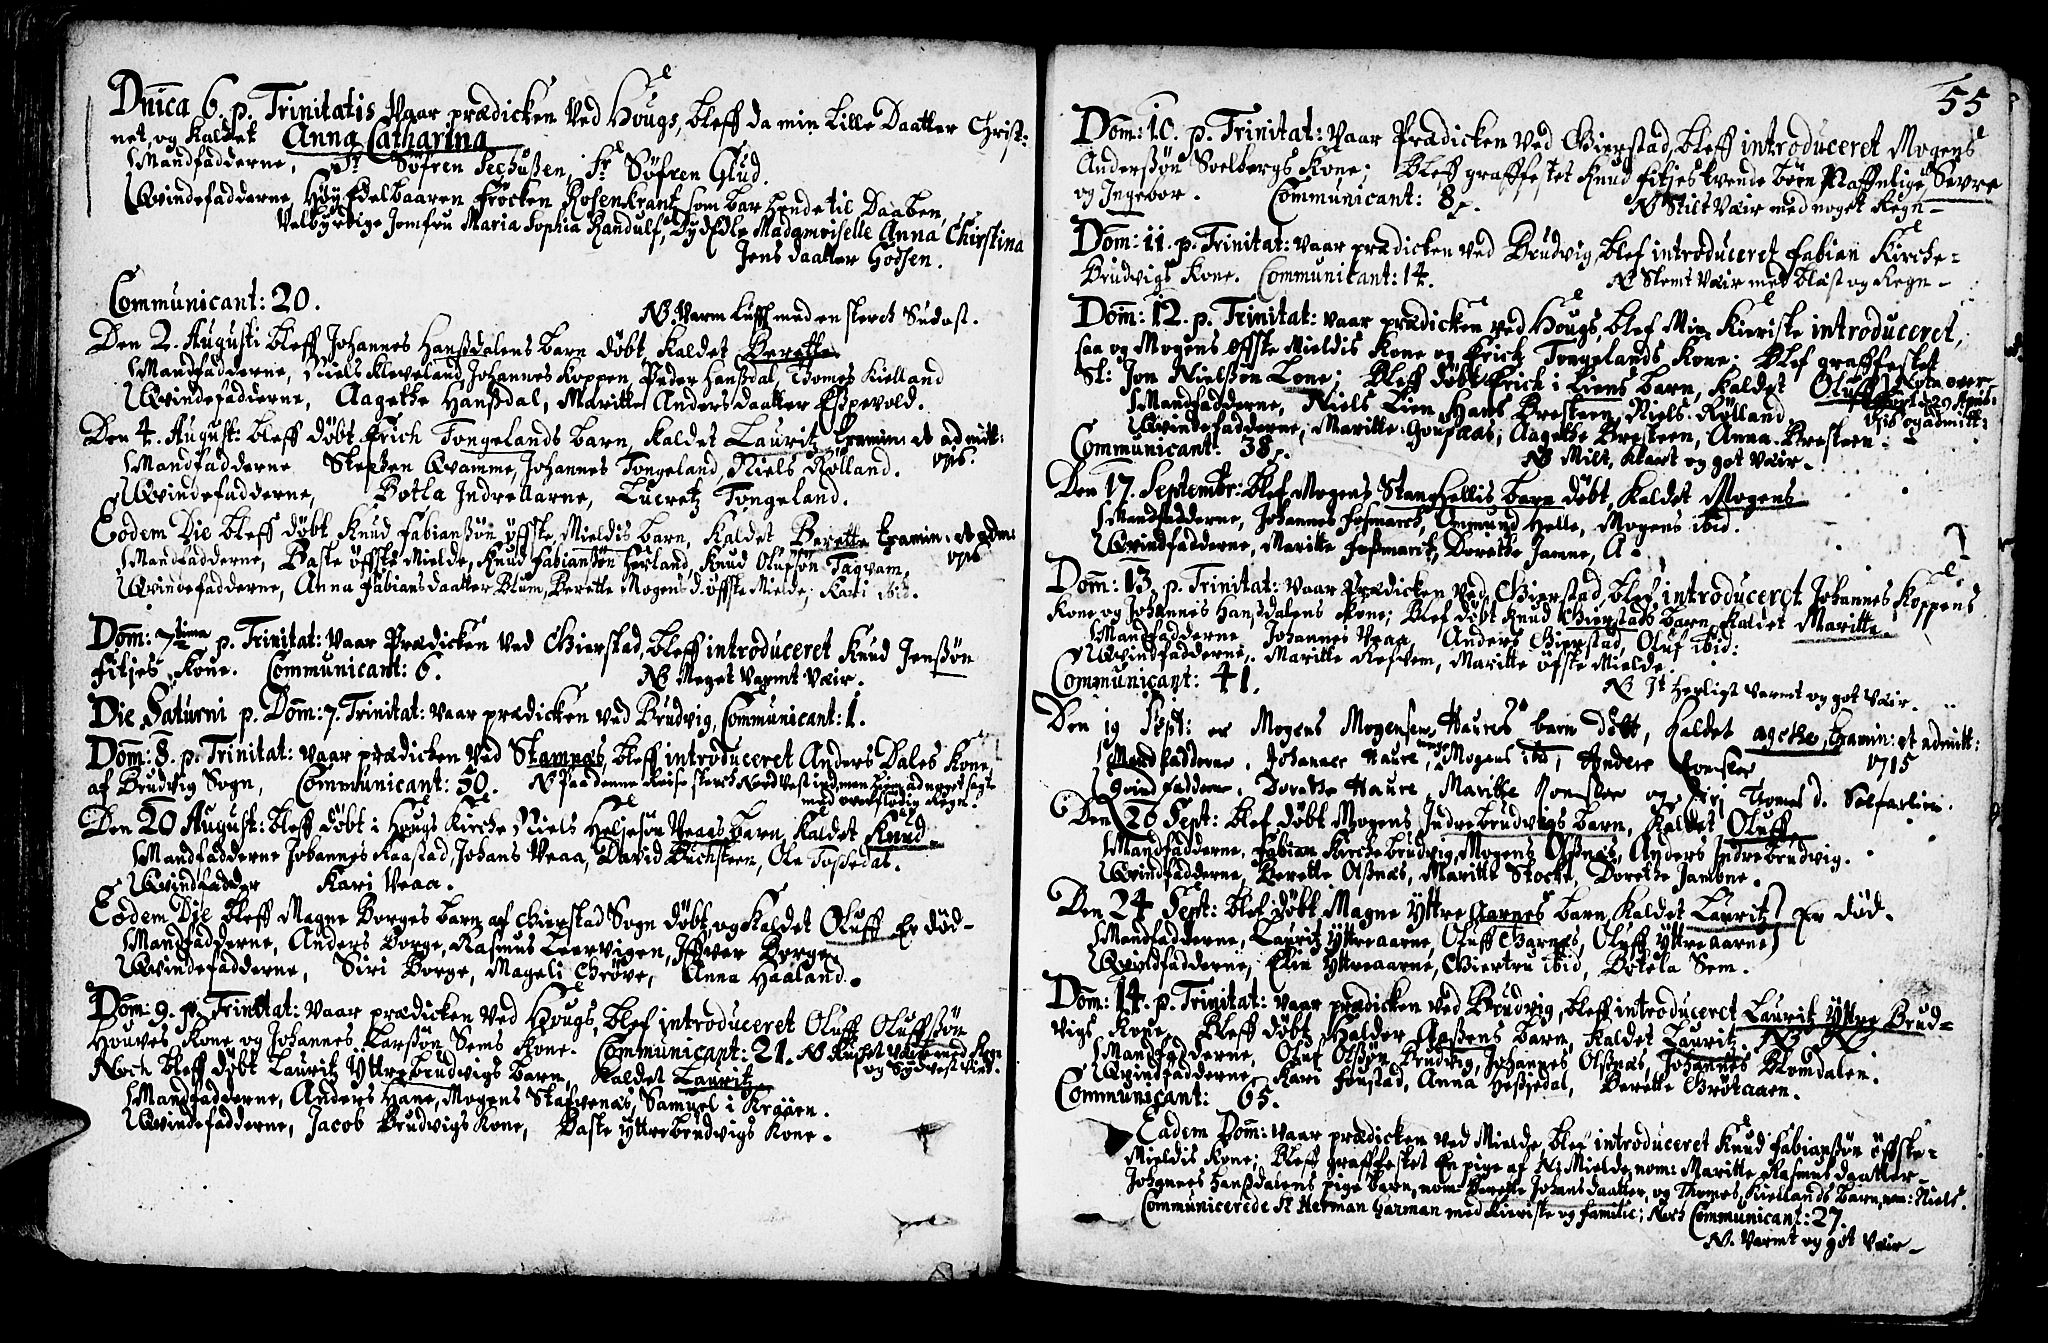 Dnīca 6. p. Trinitatis vaar prædicken ved Hougs, bleff da min lille Daatter Christ:
net, og kaldet Anna Catharina
Mandfadderne, Sr Söfren Seehußen, Sr Söfren Glud.
Qvindefadderne, Höy Edelbaaren Fröcken Rosenkrantz som bar hende til Daaben,
Velbyrdige Jomfru Maria Sophia Randulf, DydEdle Madamoiselle Anna Chirstina
Jens daatter Godsen.
Communicant: 20. NB Varm luft med en sterck Sudost.
Den 2. Augusti bleff Johannes Hanßdalens barn döbt kaldet Berette
Mandfadderne, Niels Kleveland, Johannes Koppen, Peder Hanßdal, Thomes Kielland
Qvindefadderne, Aagethe Hanßdal, Maritte Anders daatter Eßpevold.
Den 4. August: bleff döbt Erich Tongelands barn, kaldet Lauritz Examin: et admitt:
Mandfadderne Steffen Qvamme, Johannes Tongeland, Niels Rölland. 1716.
Qvindefadderne, Botla Indreaarne, Lucretz Tongeland.
Eodem Die bleff döbt Knud Fabianßön öffste Mieldis barn, kaldet Berette Examin. et adm:
Mandfadderne, Baste öffste Mielde, Knud Fabianßön Herland, Knud Olufsön Tagvam, 1716
Qvindefadderne, Anna Fabians daatter Blum, Berette Mogens d. öffste Mielde, Kari ibid.
Dom: 7tima p. Trinitat: vaar Prædicken ved Gierstad, bleff introduceret Knud Jenßön
Fitjes Kone. Communicant: 6. NB Meget varmt Vær.
Die Saturni p. Dom: 7. Trinitat: vaar prædicken ved Brudvig, Communicant: 1.
Dom: 8. p. Trinitat: vaar prædicken ved Stamnæs, bleff introduceret Anders Dales Kone,
af Brudvig Sogn, Communicant: 50. N Paa denne Reise sterck Nordvest ind, men hiem ad noget sagte
med overflödig Regn.
Den 20 August: bleff döbt i Hougs Kirche Niels Heljesön Veaas barn, kaldet Knud
Mandfadderne Johannes Raastad, Johans Veaa, David Buchsteen, Ole Tossedal.
Qvindfadder Kari Veaa.
Eodem Die bleff Magne Borges barn af Gierstad Sogn döbt, og kaldet Oluff Er död-
Mandfadderne, Anders Borge, Rasmus Leervigen, Iffver Borge.
Qvindefadderne, Siri Borge, Mageli Gröve, Anna Haaland.
Dom: 9. p. Trinitat: vaar prædicken ved Hougs, blef introduceret Oluff Oluffßön
Houves Kone og Johannes Larßön Sems Kone. Communicant: 21. N Kuhlt Vær med Regn
Noch bleff döbt Lauritz Yttrebrudvigs barn, kaldet Lauritz og Sydvest Vind.
Mandfadderne, Anders Hane, Mogens Stafvenæs, Samuel i Kraaen.
Qvindefadderne, Jacob Brudvigs Kone, Baste Yttrebrudvigs Kone.
55
Dom: 10. p. Trinitat: vaar Prædicken ved Gierstad, bleff introduceret Mogens
Anderßön Soelbergs Kone; Bleff graffestet Knud Fitjes tvende börn Naffnlige, Sevre
og Ingebor. Communicant: 8. NB Stilt Vær med noget Regn-
Dom: 11. p. Trinitat: vaar prædicken ved Brudvig, blef introduceret Fabian Kirche-
Brudvigs Kone. Communicant: 14. NB Slemt Vær med blæst og Regn-
Dom: 12. p. Trinitat: vaar prædicken ved Hougs, blef Min Kieriste introduceret,
saa og Mogens öffste Mieldis Kone og Erich Tongelands Kone; Blef graffestet
Sl: Jon Nielsön Lone; Bleff döbt Erich i Liens barn, kaldet Oluff Nota over
Mandfadderne, Niels Lien, Hans Bresteen, Niels Rölland. 29 April:
Qvindefadderne, Maritte Goufnæs, Aagethe Bresteen, Anna Bresteen. 1716 og admitt:
Communicant: 38. NB Milt, klart og got Vær.
Den 17. Septembr: Blef Mogens Stanghellis barn döbt, kaldet Mogens
Mandfadderne, Johannes Fosmarch, Ommund Helle, Mogens ibid.
Qvindfadderne, Maritte Foßmarch, Dorethe Jamne, A.
Dom: 13. p. Trinitat: vaar Prædicken ved Gierstad, blef introduceret Johannes Koppens
Kone og Johannes Hansdalens Kone; Blef döbt Knud Gierstads barn, kaldet Maritte
Mandfadderne Johannes Veaa, Anders Gierstad, Oluf ibid:
Qvindfadderne, Maritte Refvem, Maritte öfste Mielde.
Communicant: 41. NB It herligt varmt og got Vær.
Den 19 Sept: er Mogens Mogensen Haures barn döbt, kaldet agethe, Examin: et admitt:
Mandfadderne, Johannes Haure, unge Mogens ibd, Anders Romsloe 1715
Qvindfadderne, Dorethe Haure, Marithe Romsloe og Siri Thomes d. Solfarlien.
Den 20 Sept: blef döbt Mogens Indrebrudvigs barn, kaldet Oluff
Mandfadderne, Fabian Kirchebrudvig, Mogens Olßnæs, Anders Indrebrudvig.
Qvindfadderne, Berette Olßnæs, Maritte Stocke, Dorethe Jambne.
Den 24 Sept: blef döbt Magne Yttre Aarnes barn, kaldet Lauritz Er död.
Mandfadderne, Lauritz Yttreaarne, Oluff Garnæs, Oluff Yttreaarne
Qvindfadderne, Elin Yttreaarne, Giertru ibid, Botela Sem.
Dom: 14. p. Trinitat: vaar prædicken ved Brudvig, bleff introduceret Lauritz Yttre Brud-
vigs Kone, Bleff döbt Haldor Aaßens barn, kaldet Lauritz. NB NB
Mandfadderne, Oluf Olßön Brudvig, Johannes Olßnæs, Johannes Blomdalen.
Qvindfadderne, Kari Foustad, Anna Hessiedal, Berette Brötaaen.
Communicant: 65.
Eadem Dom: vaar prædicken ved Mielde, blef introduceret Knud Fabianßön öffste-
Mieldis Kone; Bleff graffestet En pige af N: Mielde, nom: Maritte Rasmus daatter-
Johannes Hanßdalens pige barn, nom: Berette Johans daatter, og Thomes Kiellands barn, nom: Niels.
Communicerede Sr Herman Garman med Kieriste og familie; Noch Communicant: 27.
N. Varmt og got Vær-